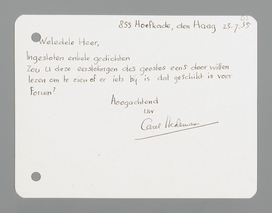 855 Hoefkade, den Haag 23-7-35
Weledele Heer,
Ingesloten enkele gedichten
Zou U deze eerstelingen des geestes eens door willen
lezen om te zien of er iets bij is dat geschikt is voor
Forum?
Hoogachtend
Uw
Carel